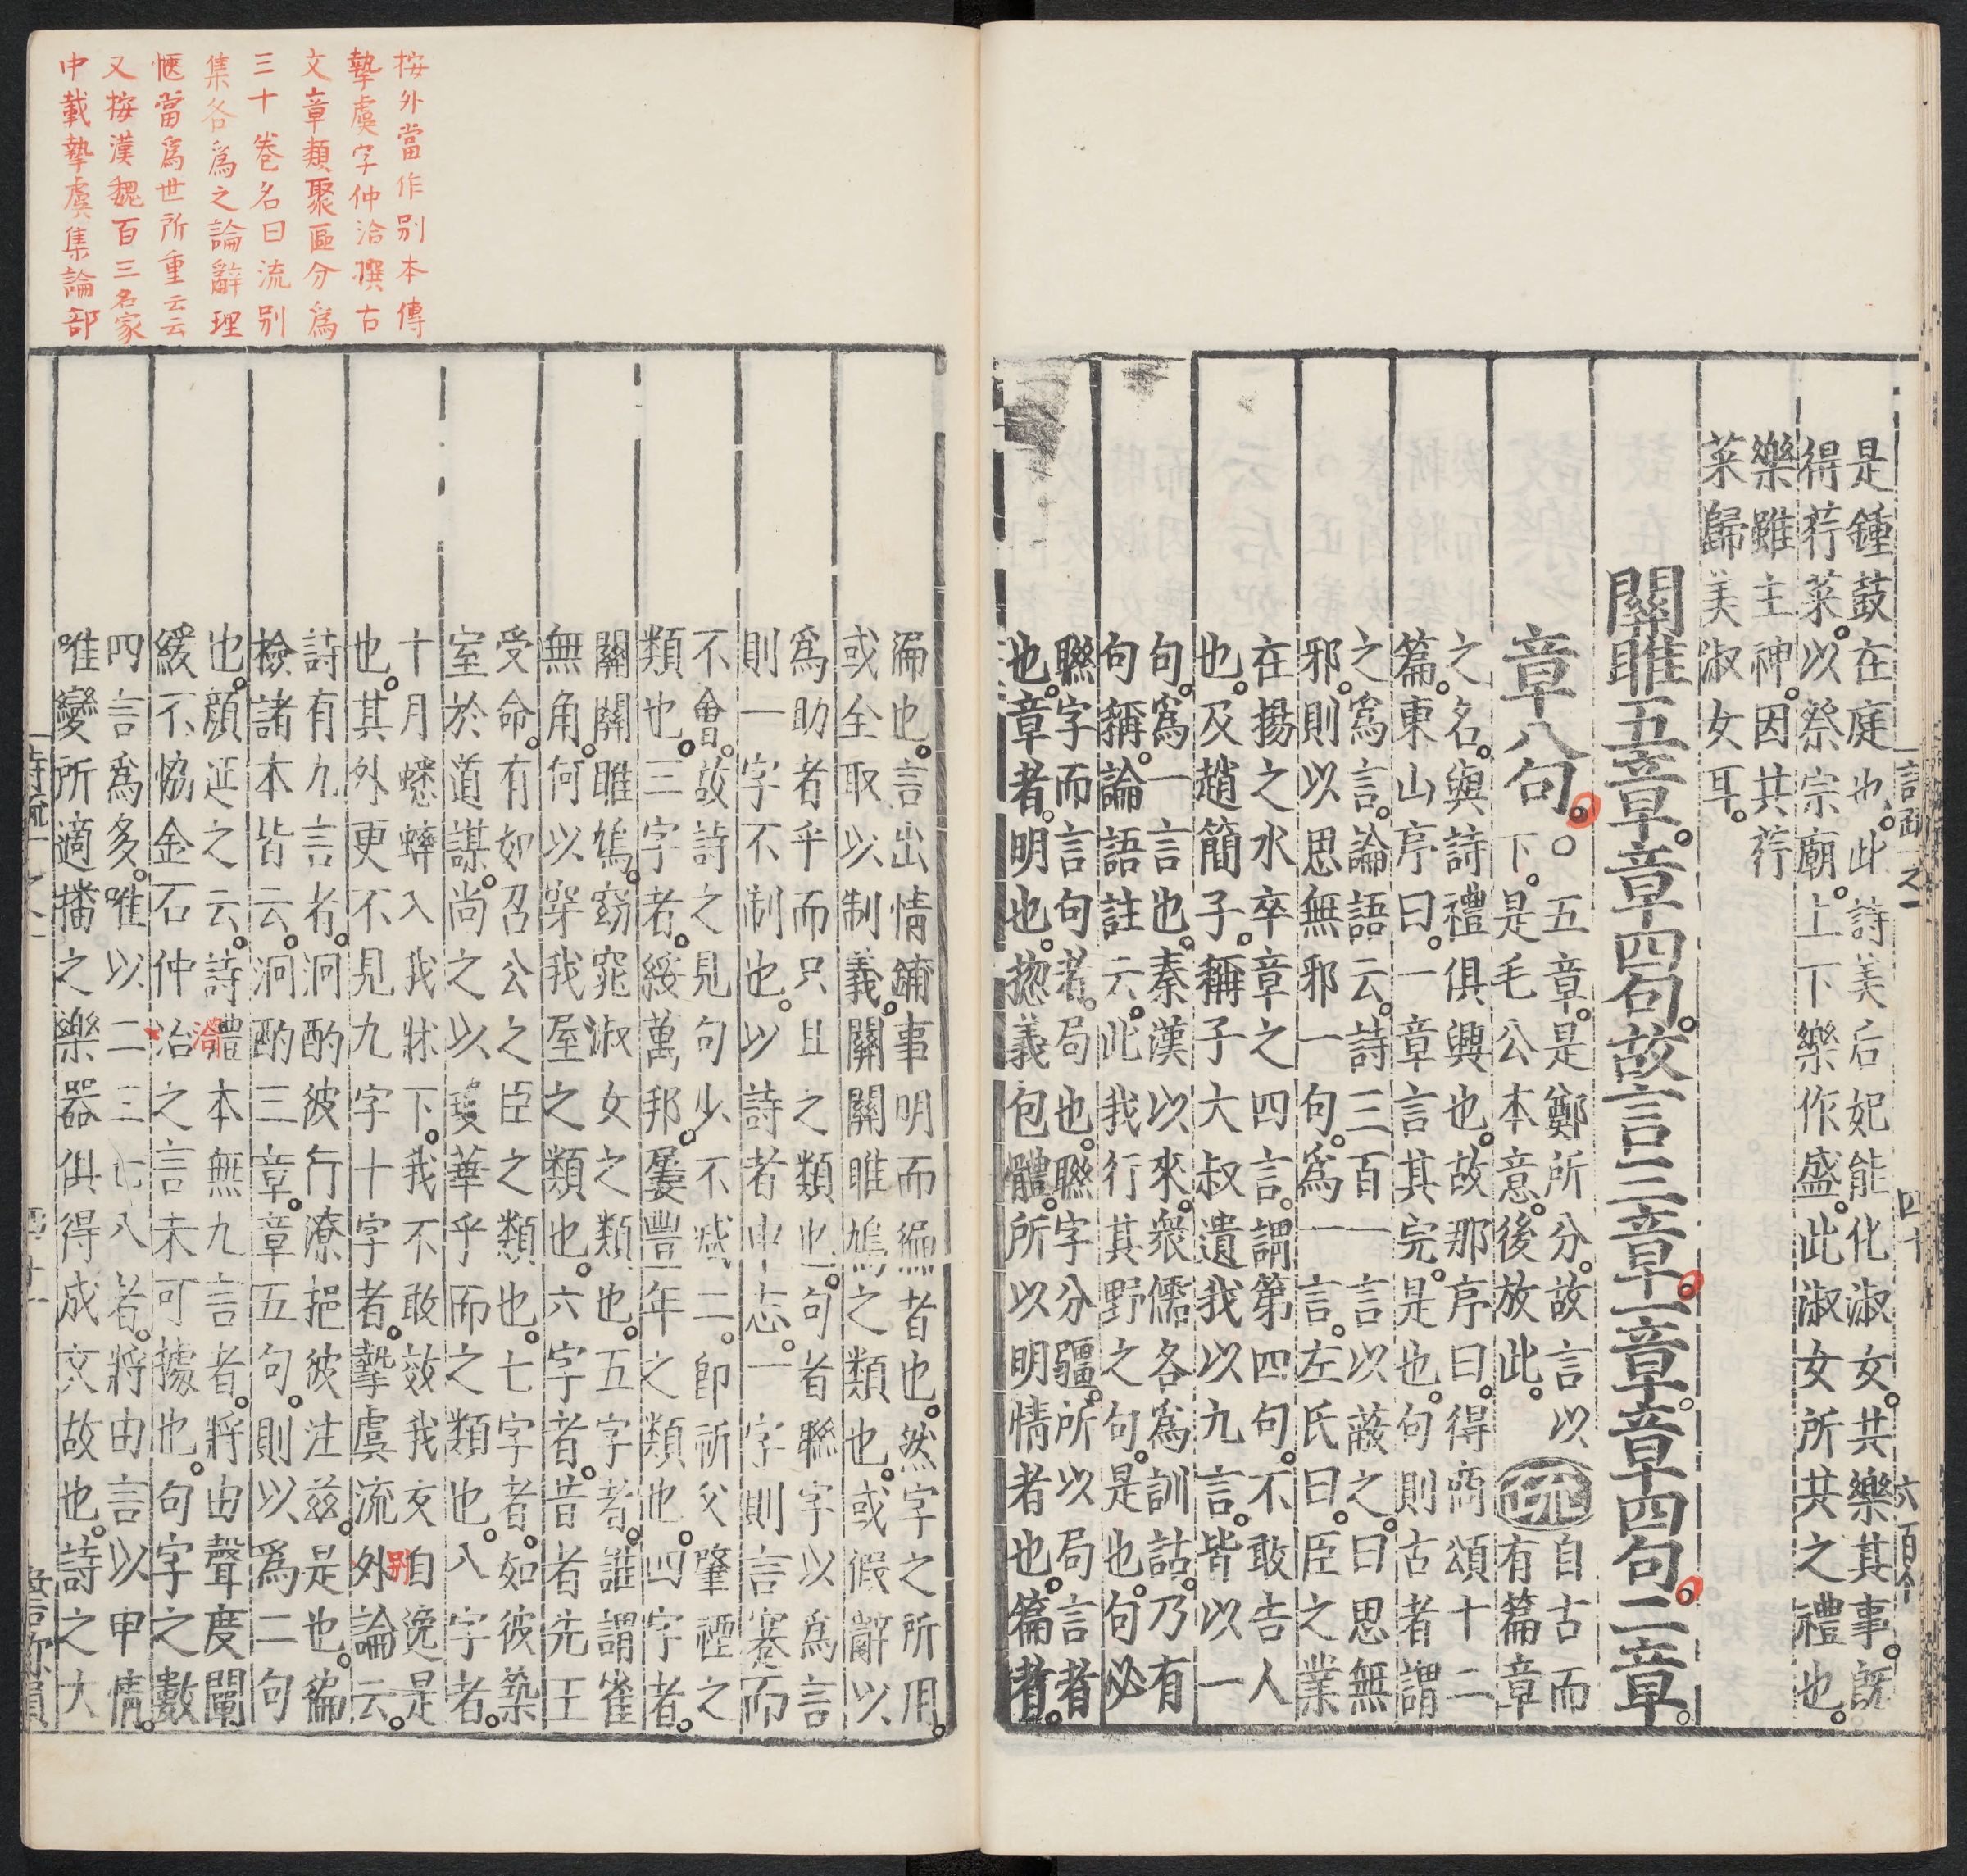 是鍾鼓在庭也此詩美后妃能化淑女共樂其事既
得荇菜以祭宗廟上下樂作盛此淑女所共之禮也
樂雖主神因共荇
菜歸美淑女耳
關雎五章章四句故言三章一章章四句二章
章八句
○五章是鄭所分故言以
下是毛公本意後放此
疏
自古而
有篇章
之名與詩禮俱興也故那序曰得商頌十二
篇東山序曰一章言其完是也句則古者謂
之為言論語云詩三百一言以蔽之曰思無
邪則以思無邪一句為一言左氏曰臣之業
在揚之水卒章之四言謂第四句不敢告人
也及趙簡子稱子大叔遺我以九言皆以一
句為一言也秦漢以來衆儒各為訓詁乃有
句稱論語註云此我行其野之句是也句必
聯字而言句者局也聯字分疆所以局言者
也章者明也揔義包體所以明情者也篇者
詩疏一之一
四十
六百个
按外當作别本傳
摯虞字仲洽撰古
文章類聚區分爲
三十卷名曰流别
集各爲之論辭理
愜當爲世所重云云
又按漢魏百三名家
中載摯虞集論部
徧也言出情鋪事明而徧者也然字之所用
或全取以制義關關雎鳩之類也或假辭以
爲助者乎而只且之類也句者聯字以爲言
則一字不制也以詩者申志一字則言蹇而
不會故詩之見句少不減二即祈父肇禋之
類也三字者綏萬邦屢豐年之類也四字者
關關雎鳩窈窕淑女之類也五字者誰謂雀
無角何以穿我屋之類也六字者昔者先王
受命有如召公之臣之類也七字者如彼築
室於道謀尚之以瓊華乎而之類也八字者
十月蟋蟀入我牀下我不敢效我友自逸是
也其外更不見九字十字者摯虞流外論云
别
詩有九言者泂酌彼行潦挹彼注兹是也徧
檢諸本皆云泂酌三章章五句則以爲二句
也顔延之云詩體本無九言者將由聲度闡
緩不協金石仲治之言未可據也句字之數
洽
四言爲多唯以二三七八者將由言以申情
唯變所適播之樂器俱得成文故也詩之大